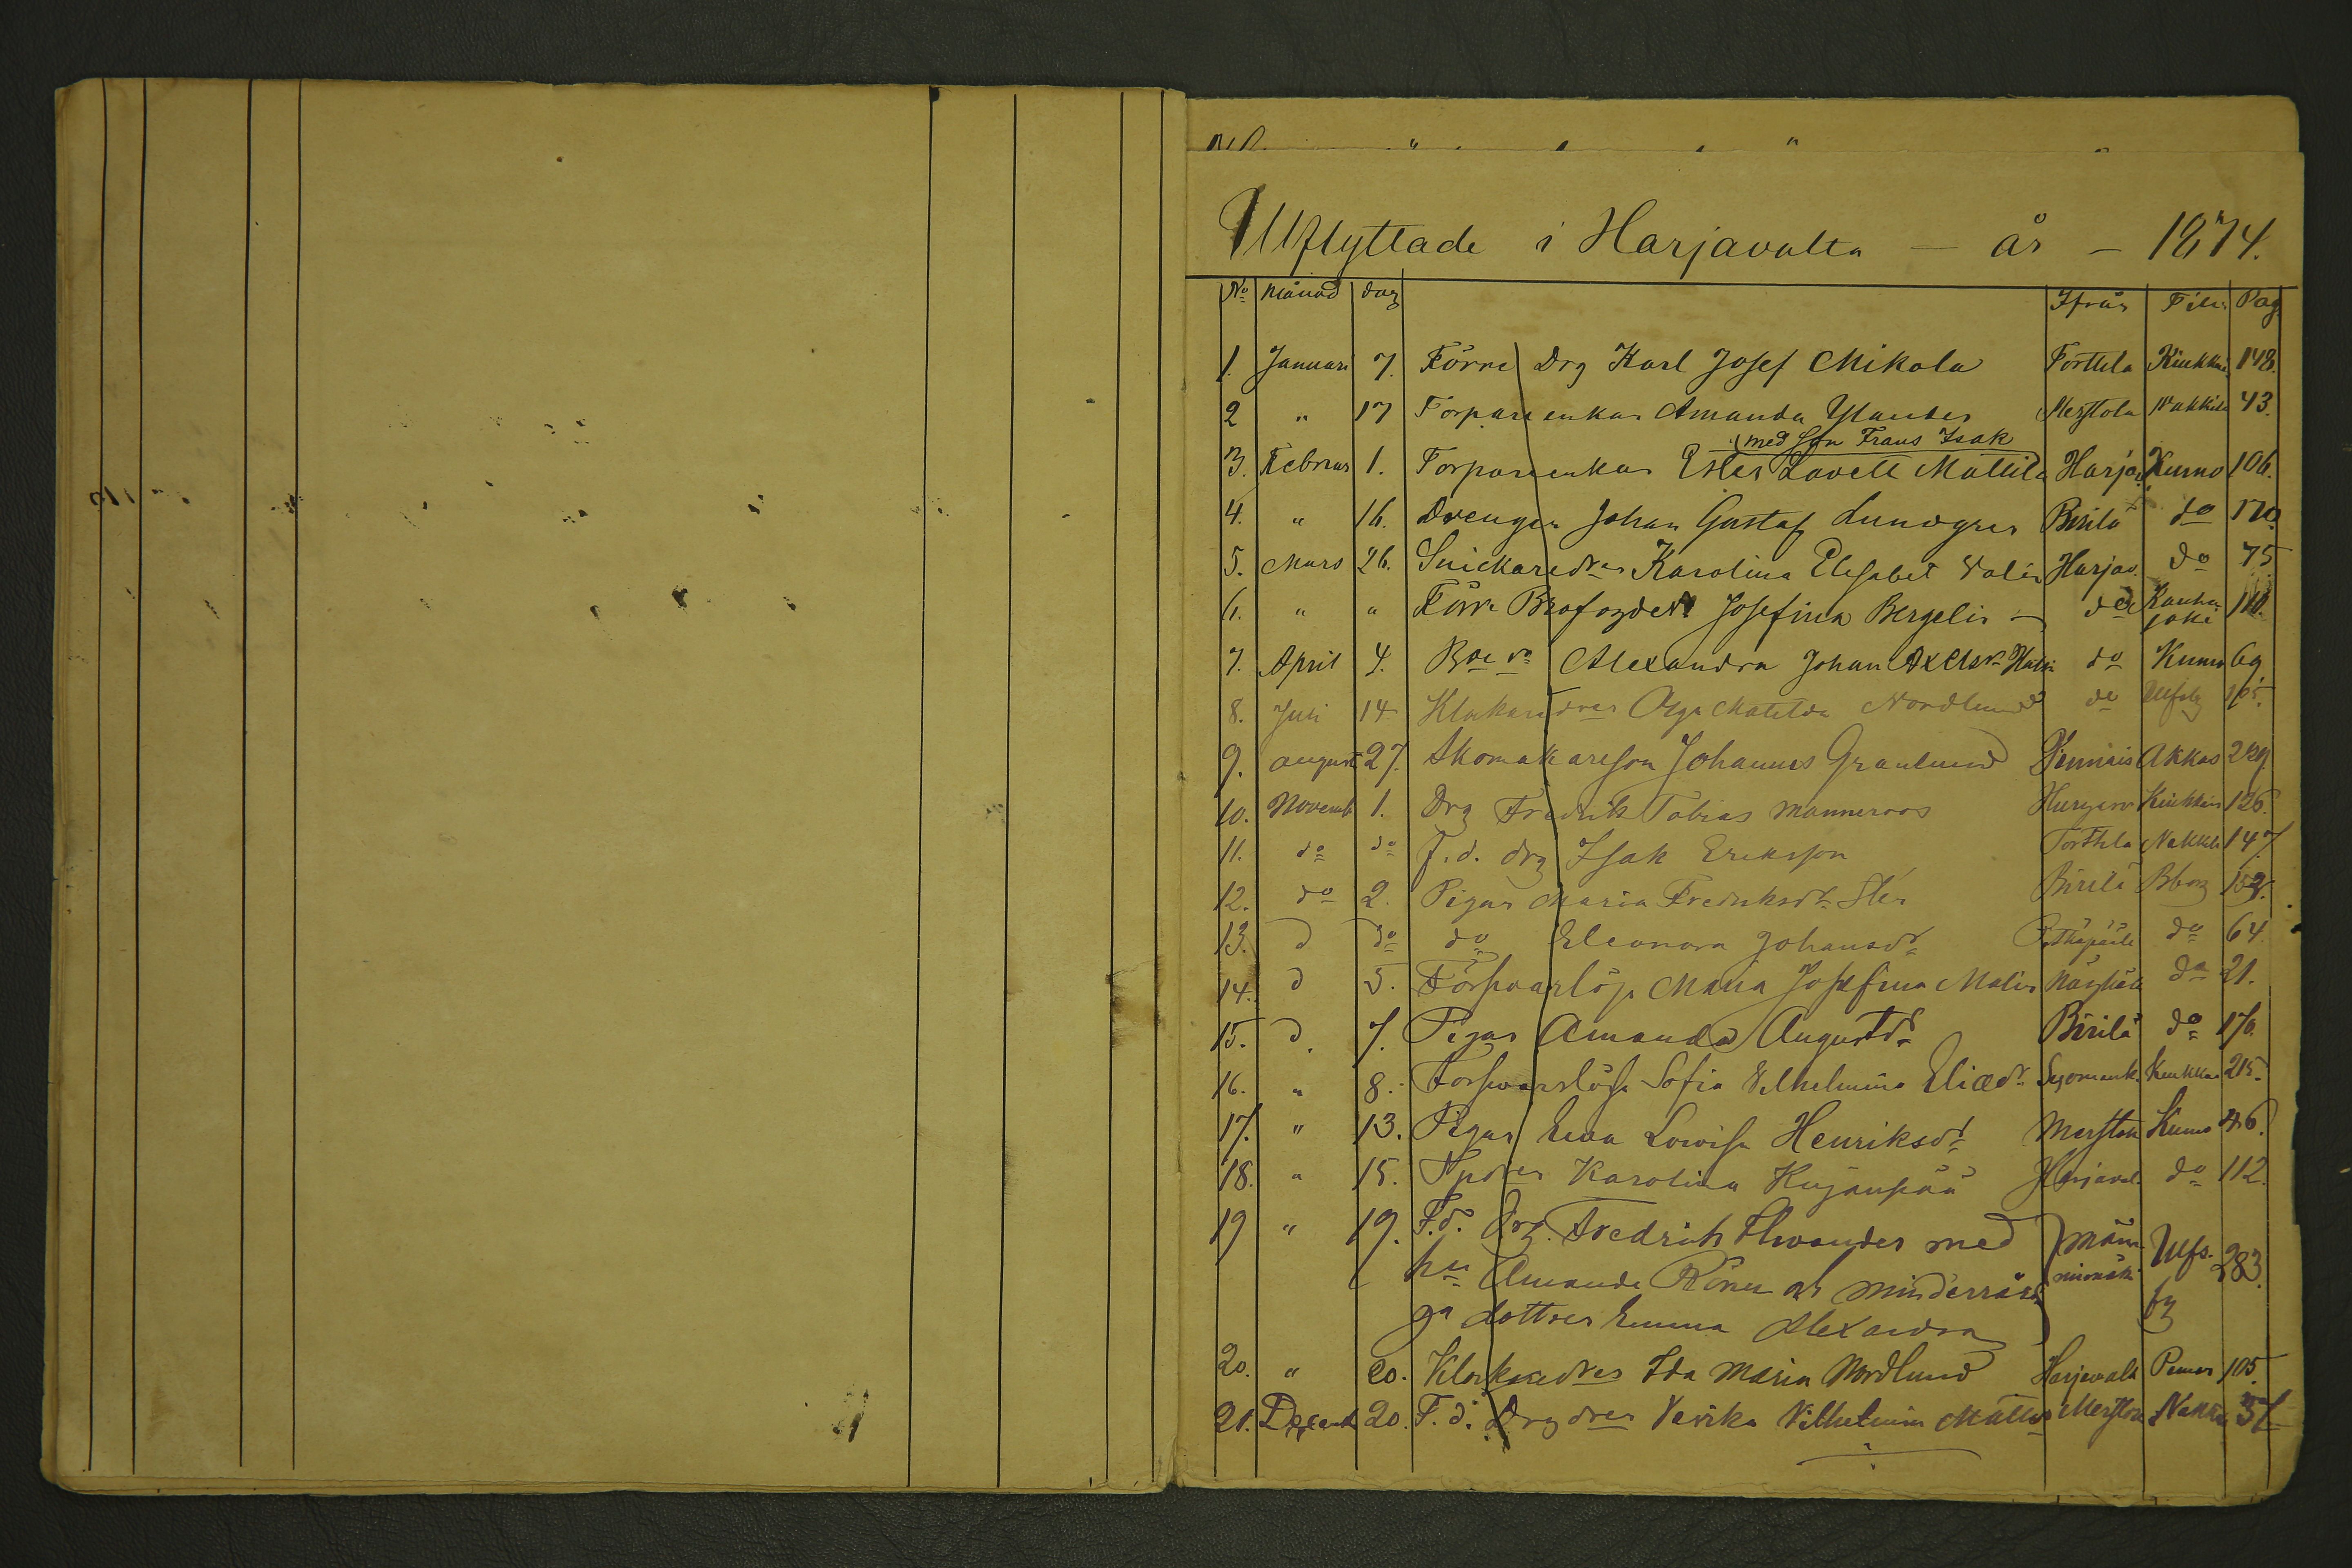 Utflyttade i Harjavalta — år — 1874.
No månad dag Ifrån Till Pag
1. Januari 7. Förre Drg Karl Josef Mikola Torttila Kiukkais 148.
2 " 17 Torpareenkan Amanda Ylander Merstola Nakkila 43.
(med son Frans Isak
3. Februar 1. Torpareenkan Ester Lovett Mattila Harja. Kumo 106.
4. " 16. Drengen Johan Gustaf Lundgren Pirilä do 170
5. Mars 26. Snickaredtrn Karolina Elisabet Valin Harjav. do 75
6. " " Förre Josefina Bergelin — do Kauha-
joki
7. April 4. Alexandra Johan do Kumo 69
8. Juli 14 Klockaredtren Olga Matilda Nordlund do Ulfsby 105.
9. august 27. Skomakareson Johannes Granlund Hinnais Akkas
10. Novemb 1. Drg Fredrik Tobias Manneroos Kiukkais 126.
11. do do F.d. drg Isak Eriksson Torttila Nakkila 147
12. do 2. Pigan Maria Fredriksdr Sten Pirilä Bborg
13. d do do Eleonora Johansdr do 64
14. d 5. Försvarslösa Maria Josefina Malin do 21.
15. d. 7. Pigan Amanda Augustdr Pirilä do 170.
16. " 8. Forsvarslösa Sofia Vilhelmina Eliædr Kiukkais 215.
17. " 13. Pigan Eva Lovisa Henriksdr Merstola Kumo 46.
18. " 15. Karolina Kujanpää Harjaval. do 112.
19 " 19. F.d. Drg. Fredrik med
hu Amanda och minderåri
ga dottren Emma Alexandra Ulfs-
by 283.
20. " 20. Klockaredtren Ida Maria Nordlund Harjavalt Pemar 105.
21. Decemb 20. F.d. Drg dren Vilhelmina Merstola Nakkila